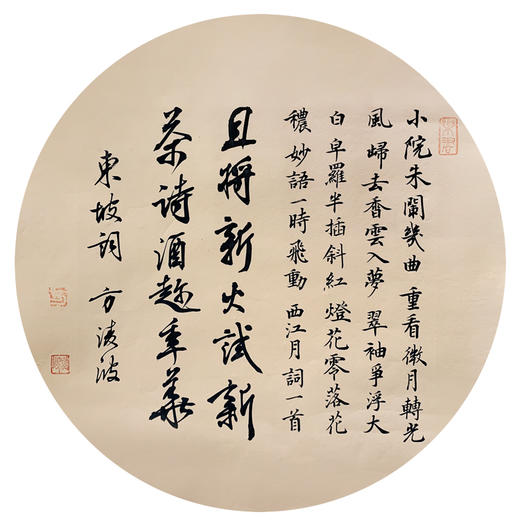 小院朱闌幾曲 重看微月轉光
風歸去香雲入夢 翠袖爭浮大
白皁羅半插斜紅 燈花零落花
穠妙語一時飛動 西江月詞一首
且將新火試新
茶詩酒趁年華
東坡詞 方波